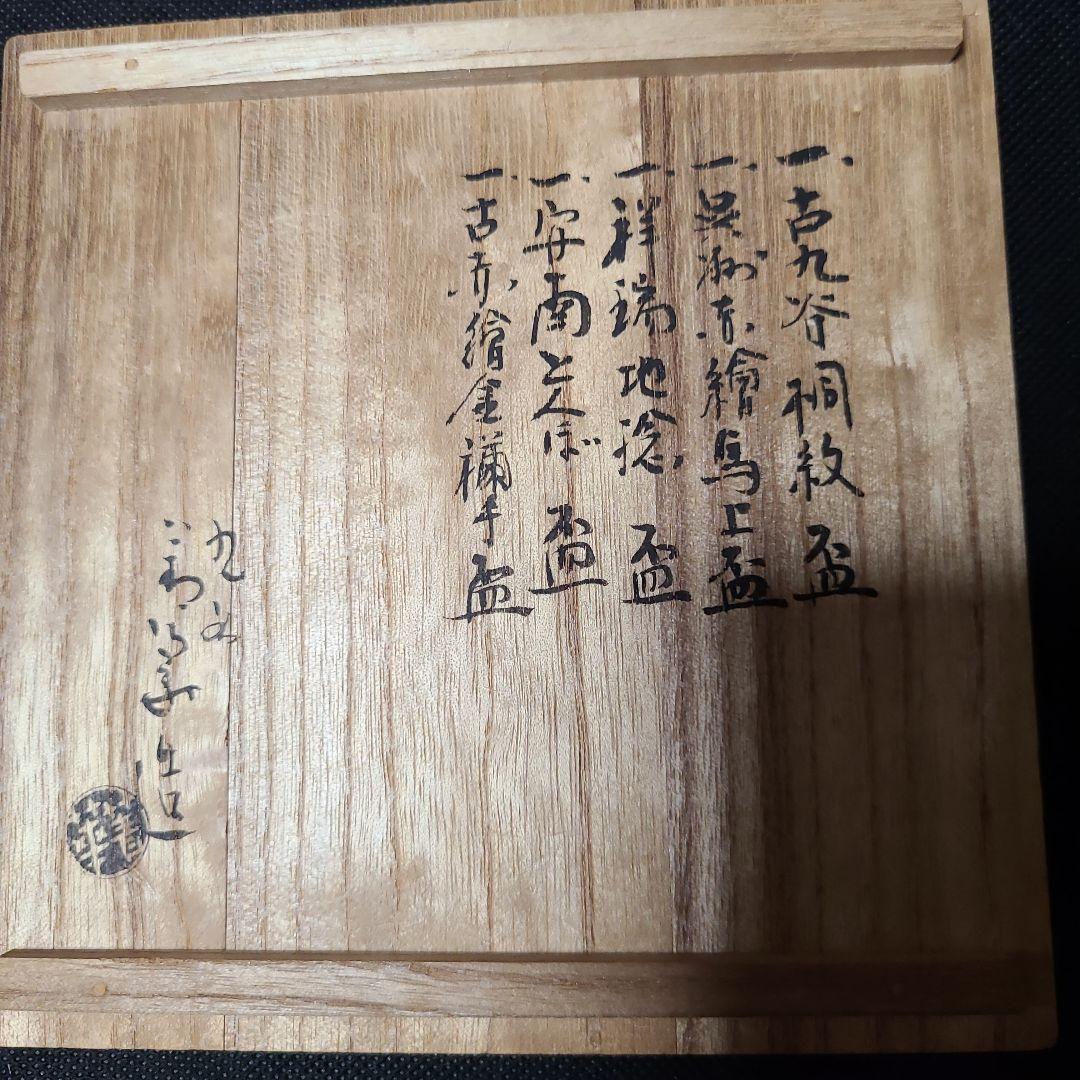 一、古九谷桐紋盃
一、呉洲赤繪馬上盃
一、祥瑞地捻盃
一、安南とんぼ盃
一、古赤繪金襴手盃
九谷
造